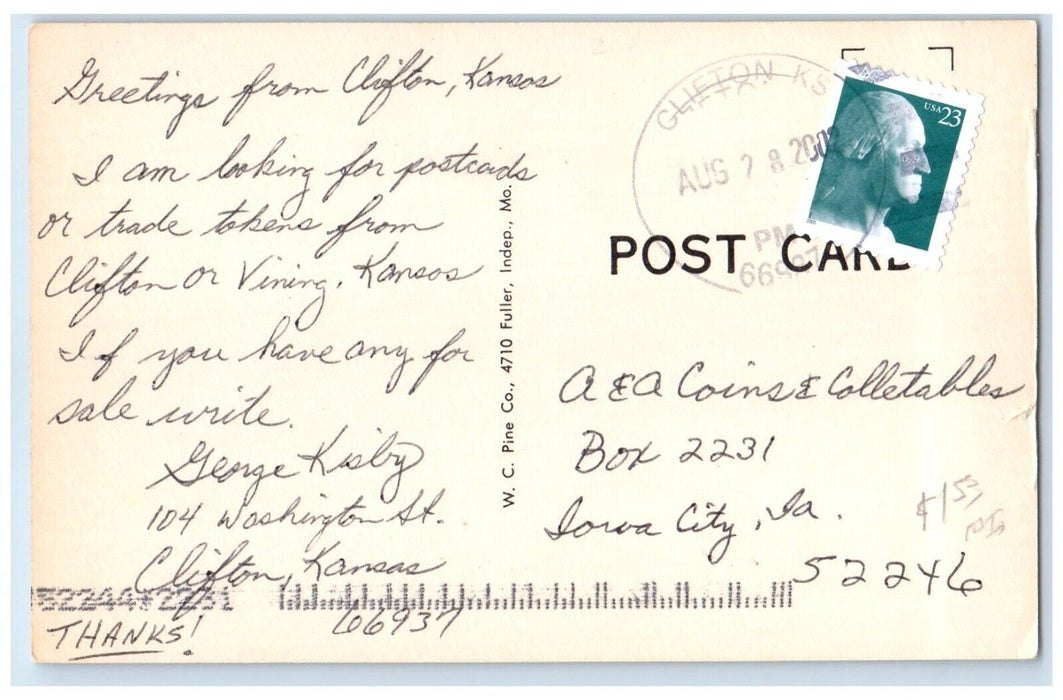 Greetings from Clifton, Kansas
I am looking for postcards
or trade tokens from
Clifton or Vining, Kansas
If you have any for
sale write.
George Kisby
104 Washington St.
Clifton, Kansas
66937
THANKS!
52244+2231
W. C. Pine Co., 4710 Fuller, Indep., Mo.
CLIFTON KS
AUG 28 200
PM
66937
USA 23
POST CARD
A & A Coins & Colletables
Box 2231
Iowa City, Ia.
52246
$1.53